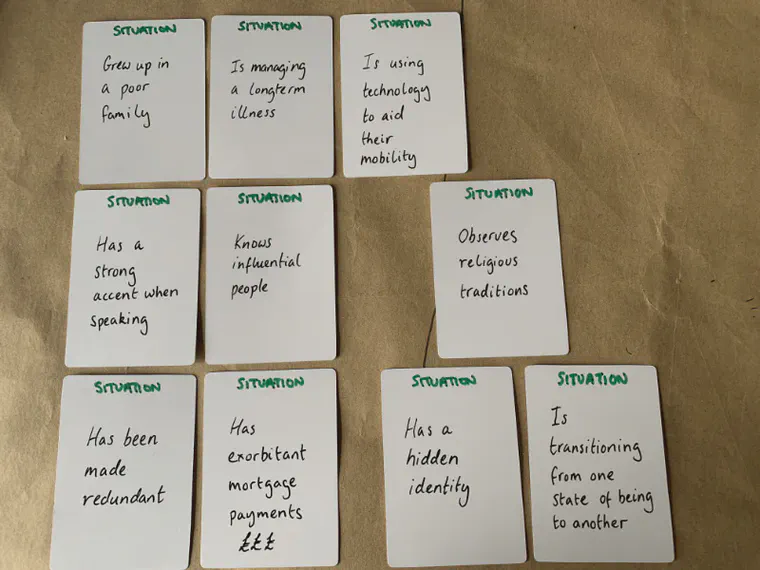 SITUATION
Grew up in
a poor
family
SITUATION
Is managing
a longterm
illness
SITUATION
Is using
technology
to aid
their
mobility
SITUATION
Has a
strong
accent when
speaking
SITUATION
Knows
influential
people
SITUATION
Observes
religious
traditions
SITUATION
Has been
made
redundant
SITUATION
Has
exorbitant
mortgage
payments
£££
SITUATION
Has a
hidden
identity
SITUATION
Is
transitioning
from one
state of being
to another